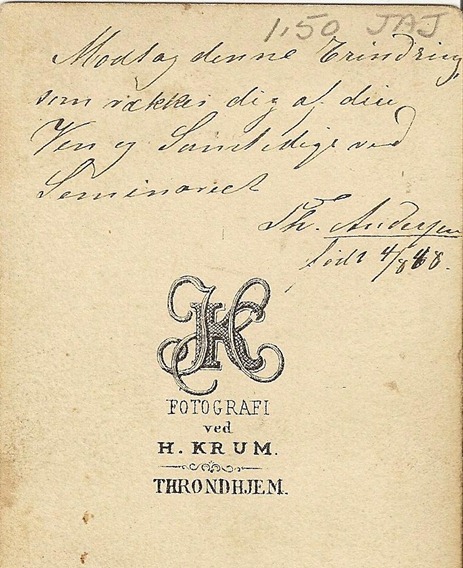 1.50 JAJ
Modtag denne Erindring
som rækkes dig af din
Ven og Samtidige ved
Seminariet
Th. Andersen
født 4/8 48.
HK
FOTOGRAFI
ved
H. KRUM.
THRONDHJEM.